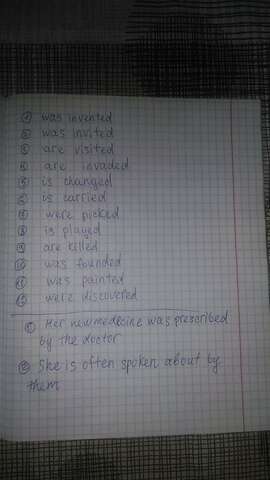 ① was invented
② was invited
③ are visited
④ are invaded
⑤ is changed
⑥ is carried
⑦ were picked
⑧ is played
⑨ are killed
⑩ was founded
⑪ was painted
⑫ were discovered
Her new medecine was prescribed
by the doctor
② She is often spoken about by
them